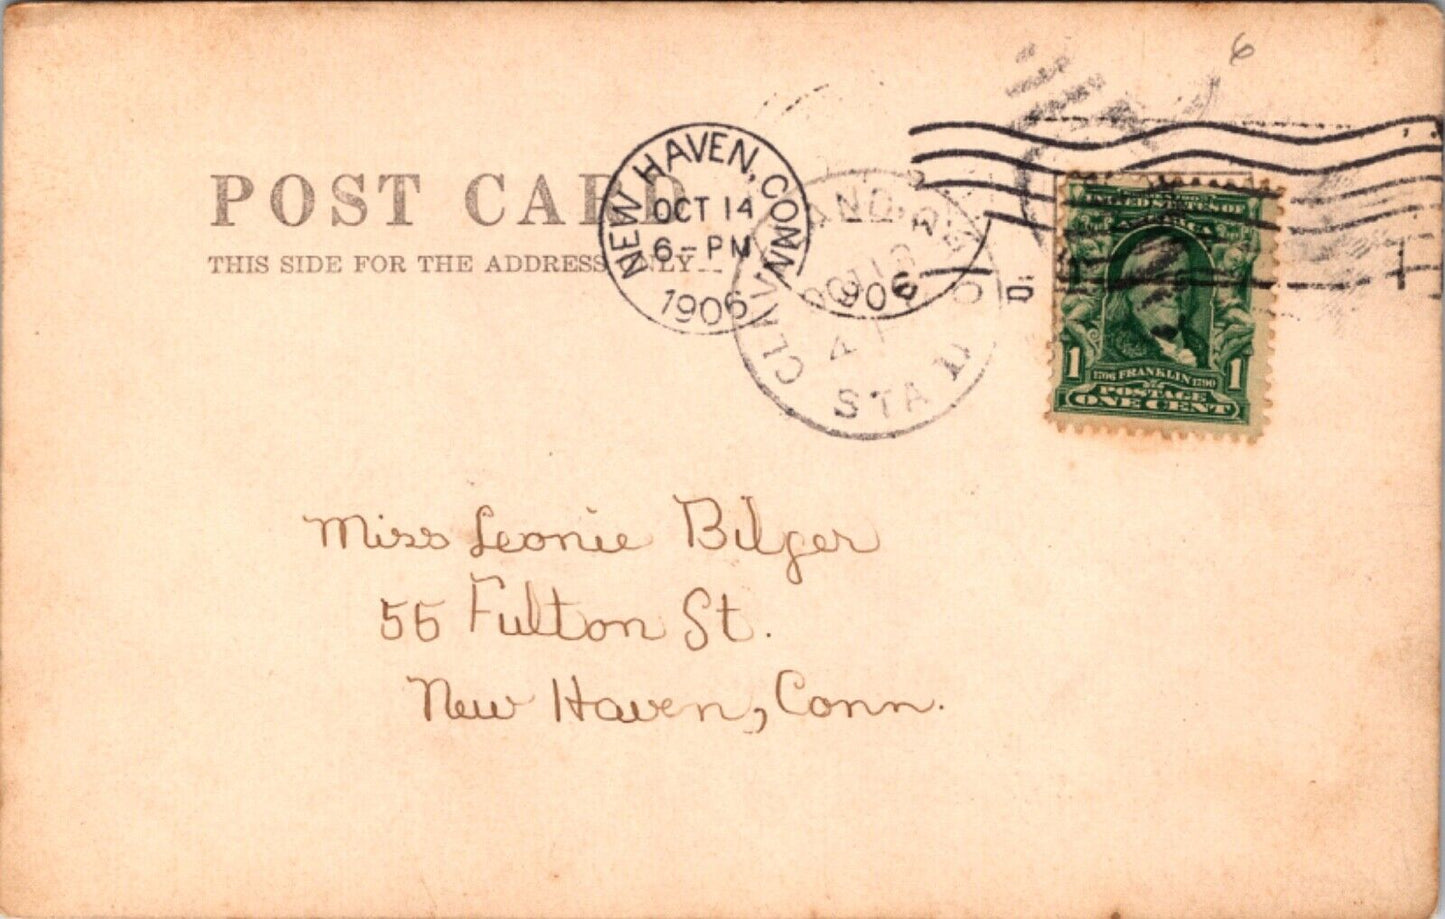 6
POST CARD
THIS SIDE FOR THE ADDRESS ONLY
NEW HAVEN, CONN.
OCT 14
6-PM
1906
OCT 13
4 P
1906
STA
D.
1
UNITED STATES OF
AMERICA
1 1
1706 FRANKLIN 1790
POSTAGE
ONE CENT
Miss Leonie Bilger
55 Fulton St.
New Haven, Conn.